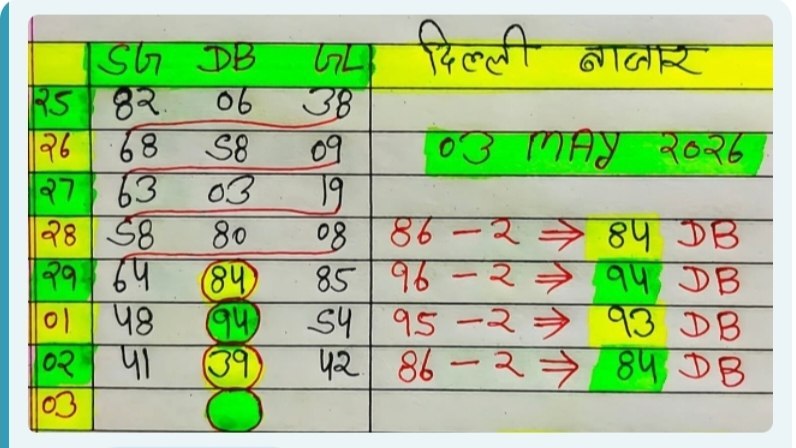 SG DB GL दिल्ली बाजार
२5 8२ 06 38
२6 68 58 09 03 MAY २0२6
२7 63 03 19
२8 58 80 08 86 - २ ⇒ 84 DB
२9 64 84 85 96 - २ ⇒ 94 DB
01 48 94 54 95 - २ ⇒ 93 DB
0२ 41 39 4२ 86 - २ ⇒ 84 DB
03